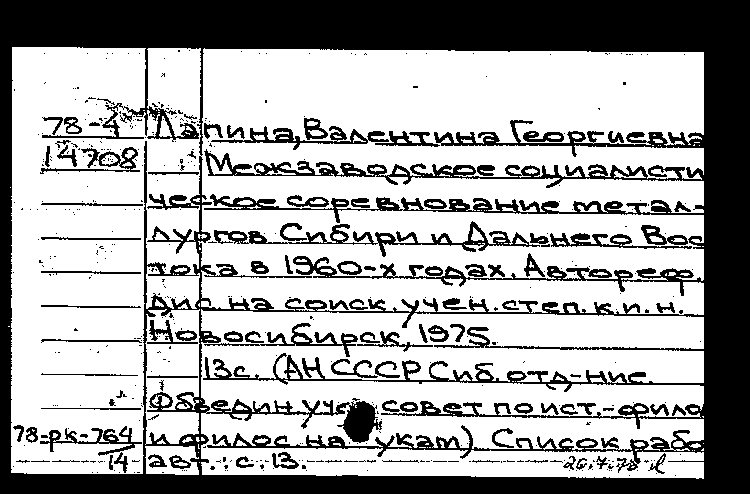 78-4 Лапина, Валентина Георгиевна
14708 Межзаводское социалисти
ческое соревнование метал-
лургов Сибири и Дальнего Вос
тока в 1960-х годах. Автореф.
дис. на соиск. учен. степ. к.и.н.
Новосибирск, 1975.
13с. (АН СССР Сиб. отд-ние.
Объедин. уч. совет по ист.-фило
78-рк-764 и филос. наукам). Список рабо
14 авт.: с. 13. 26.4.78